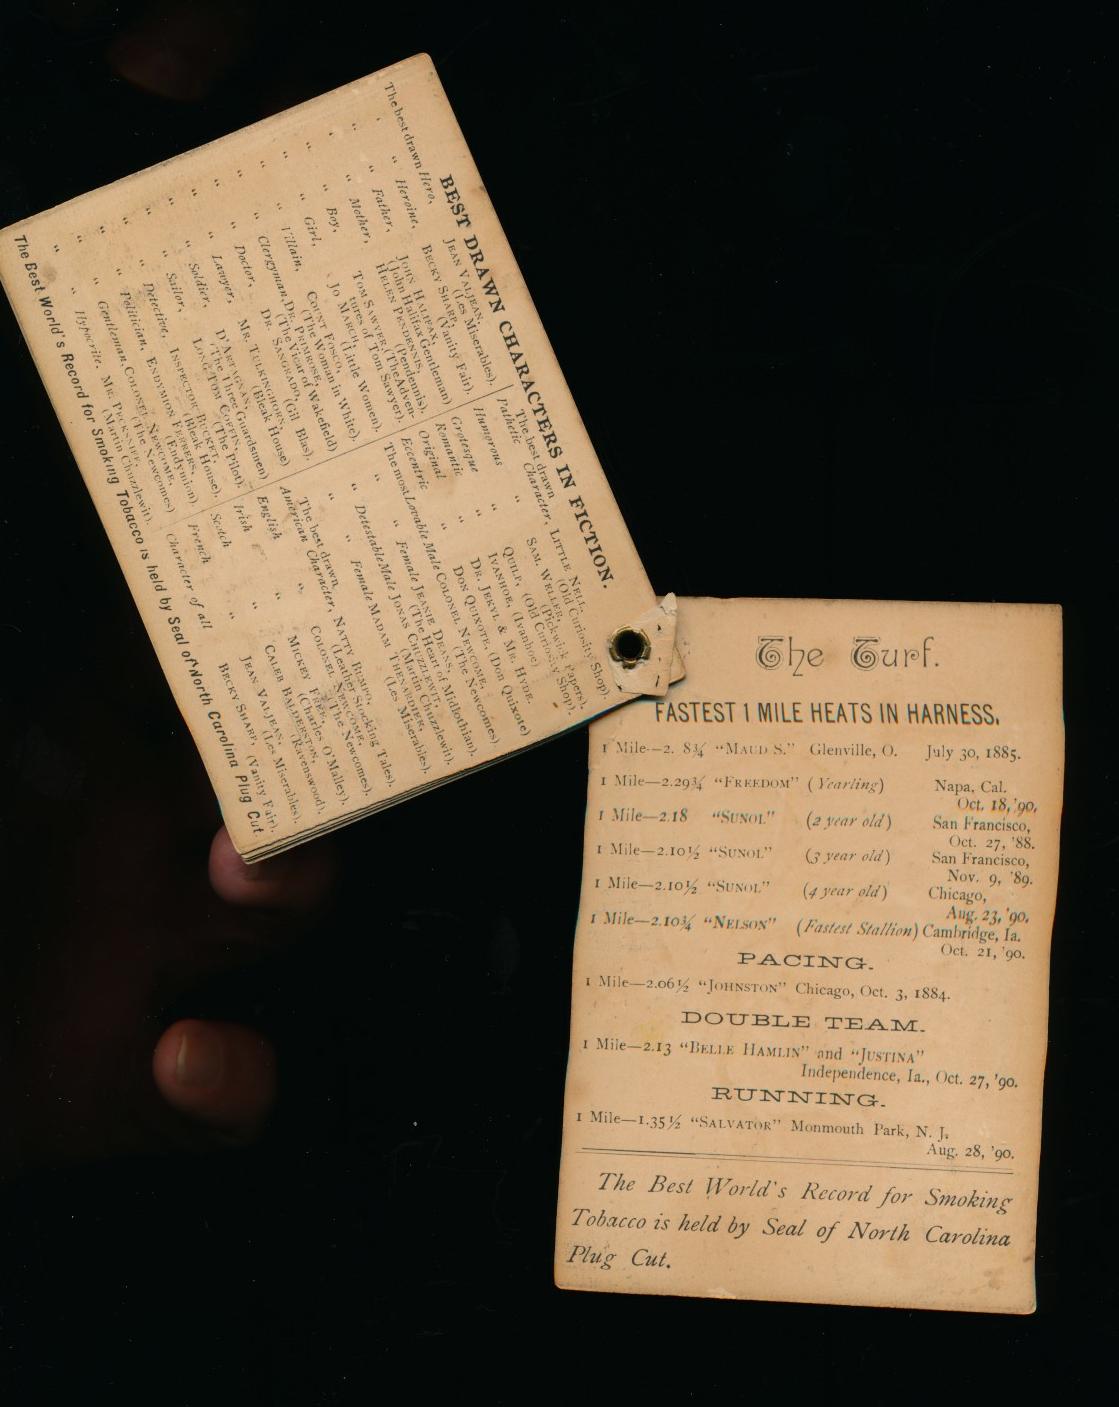 BEST DRAWN CHARACTERS IN FICTION.
The best drawn Hero, JEAN VALJEAN,
(Les Miserables).
“ “ Heroine, BECKY SHARP,
(Vanity Fair).
“ “ Father, JOHN HALIFAX,
(John Halifax Gentleman)
“ “ Mother, HELEN PENDENNIS,
(Pendennis).
“ “ Boy, TOM SAWYER, (The Adven-
tures of Tom Sawyer).
“ “ Girl, JO MARCH, (Little Women).
“ “ Villain, COUNT FOSCO,
(The Woman in White).
“ “ Clergyman, DR. PRIMROSE,
(The Vicar of Wakefield)
“ “ Doctor, DR. SANGRADO, (Gil Blas).
“ “ Lawyer, MR. TULKINGHORN,
(Bleak House)
“ “ Soldier, D'ARTAGNAN,
(The Three Guardsmen)
“ “ Sailor, LONG TOM COFFIN,
(The Pilot).
“ “ Detective, INSPECTOR BUCKET,
(Bleak House).
“ “ Politician, ENDYMION FERRERS,
(Endymion).
“ “ Gentleman, COLONEL NEWCOME,
(The Newcomes)
“ “ Hypocrite, MR. PECKSNIFF,
(Martin Chuzzlewit).
The best drawn
Pathetic Character, LITTLE NELL,
(Old Curiosity Shop).
Humorous “ SAM. WELLER,
(Pickwick Papers).
Grotesque “ QUILP, (Old Curiosity Shop).
Romantic “ IVANHOE, (Ivanhoe)
Original “ DR. JEKYL & MR. HYDE.
Eccentric “ DON QUIXOTE, (Don Quixote)
The most Lovable Male COLONEL NEWCOME,
(The Newcomes)
“ “ Female JEANIE DEANS,
(The Heart of Midlothian).
“ Detestable Male JONAS CHUZZLEWIT,
(Martin Chuzzlewit).
“ “ Female MADAM THENARDIER,
(Les Miserables).
The best drawn,
American Character, NATTY BUMPO,
(Leather Stocking Tales)
English “ COLONEL NEWCOME,
(The Newcomes).
Irish “ MICKEY FREE,
(Charles O'Malley).
Scotch “ CALEB BALDERSTON,
(Ravenswood)
French “ JEAN VALJEAN,
(Les Miserables).
Character of all BECKY SHARP, (Vanity Fair).
The Best World's Record for Smoking Tobacco is held by Seal of North Carolina Plug Cut.
The Turf.
FASTEST 1 MILE HEATS IN HARNESS.
1 Mile—2. 8¾ “MAUD S.” Glenville, O. July 30, 1885.
1 Mile—2.29¾ “FREEDOM” (Yearling) Napa, Cal.
Oct. 18, '90,
1 Mile—2.18 “SUNOL” (2 year old) San Francisco,
Oct. 27, '88.
1 Mile—2.10½ “SUNOL” (3 year old) San Francisco,
Nov. 9, '89.
1 Mile—2.10½ “SUNOL” (4 year old) Chicago,
Aug. 23, '90.
1 Mile—2.10¾ “NELSON” (Fastest Stallion) Cambridge, Ia.
Oct. 21, '90.
PACING.
1 Mile—2.06½ “JOHNSTON” Chicago, Oct. 3, 1884.
DOUBLE TEAM.
1 Mile—2.13 “BELLE HAMLIN” and “JUSTINA”
Independence, Ia., Oct. 27, '90.
RUNNING.
1 Mile—1.35½ “SALVATOR” Monmouth Park, N. J.
Aug. 28, '90.
The Best World's Record for Smoking
Tobacco is held by Seal of North Carolina
Plug Cut.